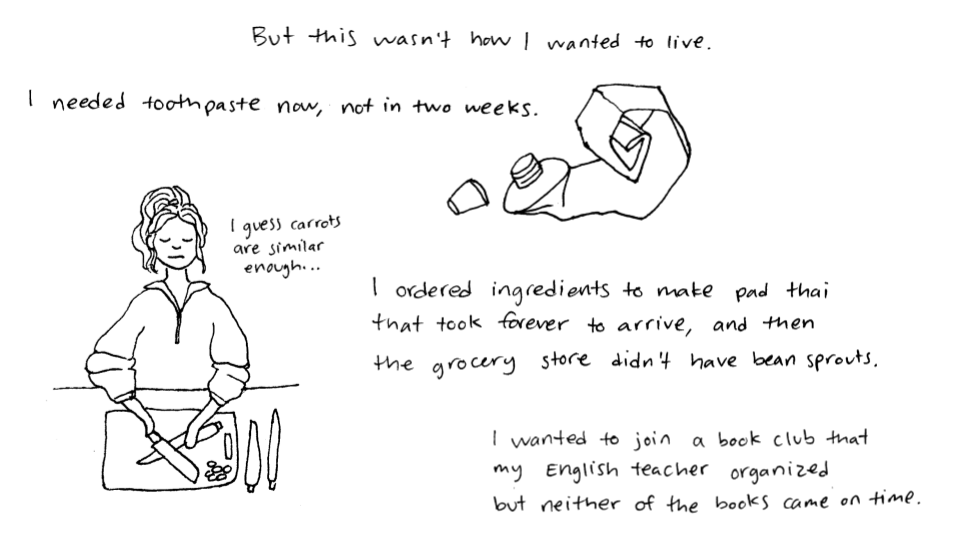 But this wasn't how I wanted to live.
I needed toothpaste now, not in two weeks.
I guess carrots
are similar
enough...
I ordered ingredients to make pad thai
that took forever to arrive, and then
the grocery store didn't have bean sprouts.
I wanted to join a book club that
my English teacher organized
but neither of the books came on time.